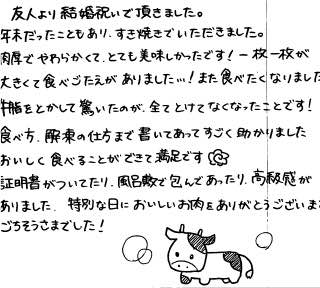 友人より結婚祝いで頂きました。
年末だったこともあり、すき焼きでいただきました。
肉厚でやわらかくて、とても美味しかったです！一枚一枚が
大きくて食べごたえがありました…！また食べたくなりました
牛脂をとかして驚いたのが、全てとけてなくなったことです！
食べ方、解凍の仕方まで書いてあってすごく助かりました
おいしく食べることができて満足です
証明書がついてたり、風呂敷で包んであったり、高級感が
ありました、特別な日においしいお肉をありがとうございま
ごちそうさまでした！